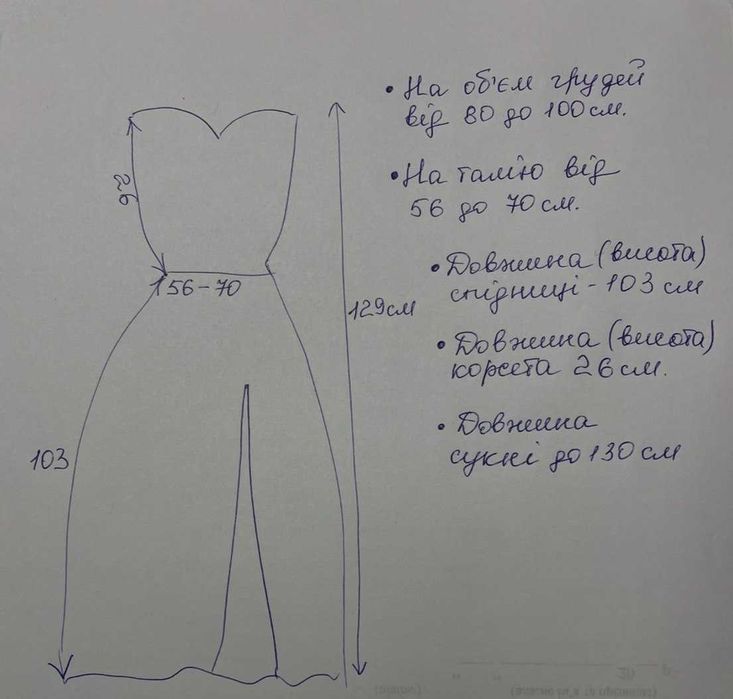 • На об'єм грудей
від 80 до 100 см.
• На талію від
56 до 70 см.
• Довжина (висота)
спідниці - 103 см
• Довжина (висота)
корсета 26 см.
• Довжина
сукні до 130 см
26
56-70
129 см
103